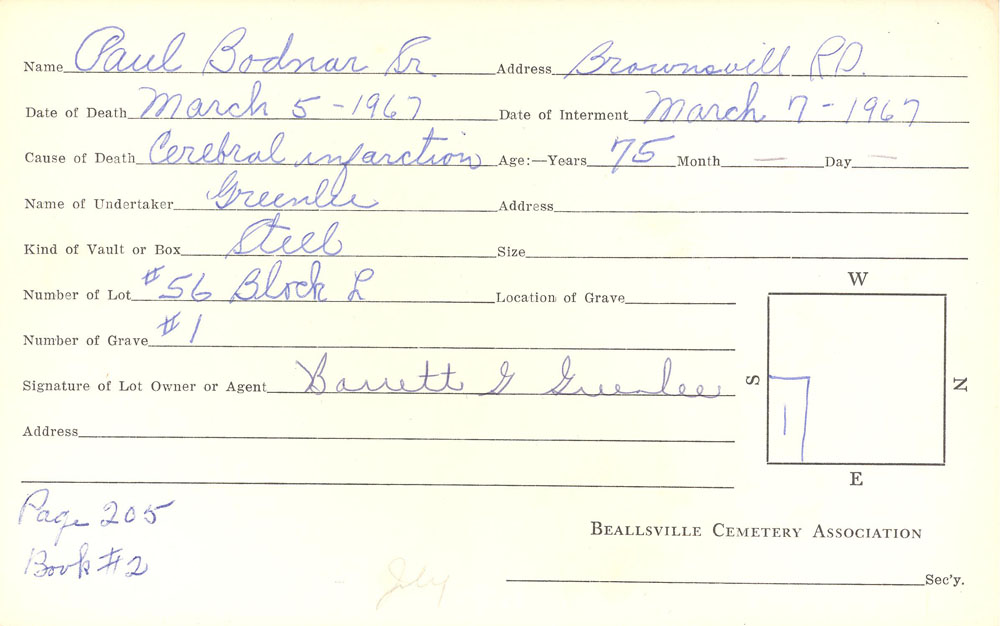 Name Paul Bodnar Sr. Address Brownsvill RD.
Date of Death March 5-1967 Date of Interment March 7-1967
Cause of Death Cerebral infarction Age:—Years 75 Month — Day —
Name of Undertaker Greenlee Address
Kind of Vault or Box Steel Size
Number of Lot #56 Block L Location of Grave
Number of Grave #1
Signature of Lot Owner or Agent Barrett G Greenlee
Address
W
S
N
1
E
Page 205
Book #2
BEALLSVILLE CEMETERY ASSOCIATION
Sec'y.